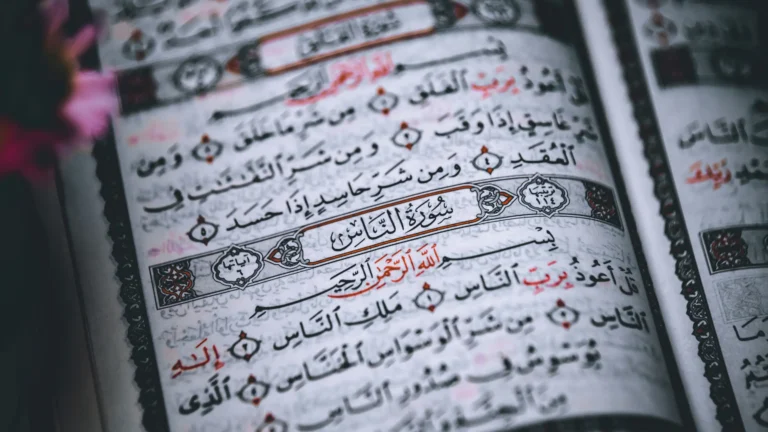 سُورَةُ الفَلَقِ
بِسْمِ اللَّهِ الرَّحْمَٰنِ الرَّحِيمِ
قُلْ أَعُوذُ بِرَبِّ الْفَلَقِ ١ مِن شَرِّ مَا خَلَقَ ٢ وَمِن
شَرِّ غَاسِقٍ إِذَا وَقَبَ ٣ وَمِن شَرِّ النَّفَّٰثَٰتِ فِي
الْعُقَدِ ٤ وَمِن شَرِّ حَاسِدٍ إِذَا حَسَدَ ٥
ترتيبها ١١٤ سُورَةُ النَّاسِ آياتها ٦
بِسْمِ اللَّهِ الرَّحْمَٰنِ الرَّحِيمِ
قُلْ أَعُوذُ بِرَبِّ النَّاسِ ١ مَلِكِ النَّاسِ ٢ إِلَٰهِ
النَّاسِ ٣ مِن شَرِّ الْوَسْوَاسِ الْخَنَّاسِ ٤ الَّذِي
يُوَسْوِسُ فِي صُدُورِ النَّاسِ
مِنَ الْجِنَّةِ وَالنَّاسِ